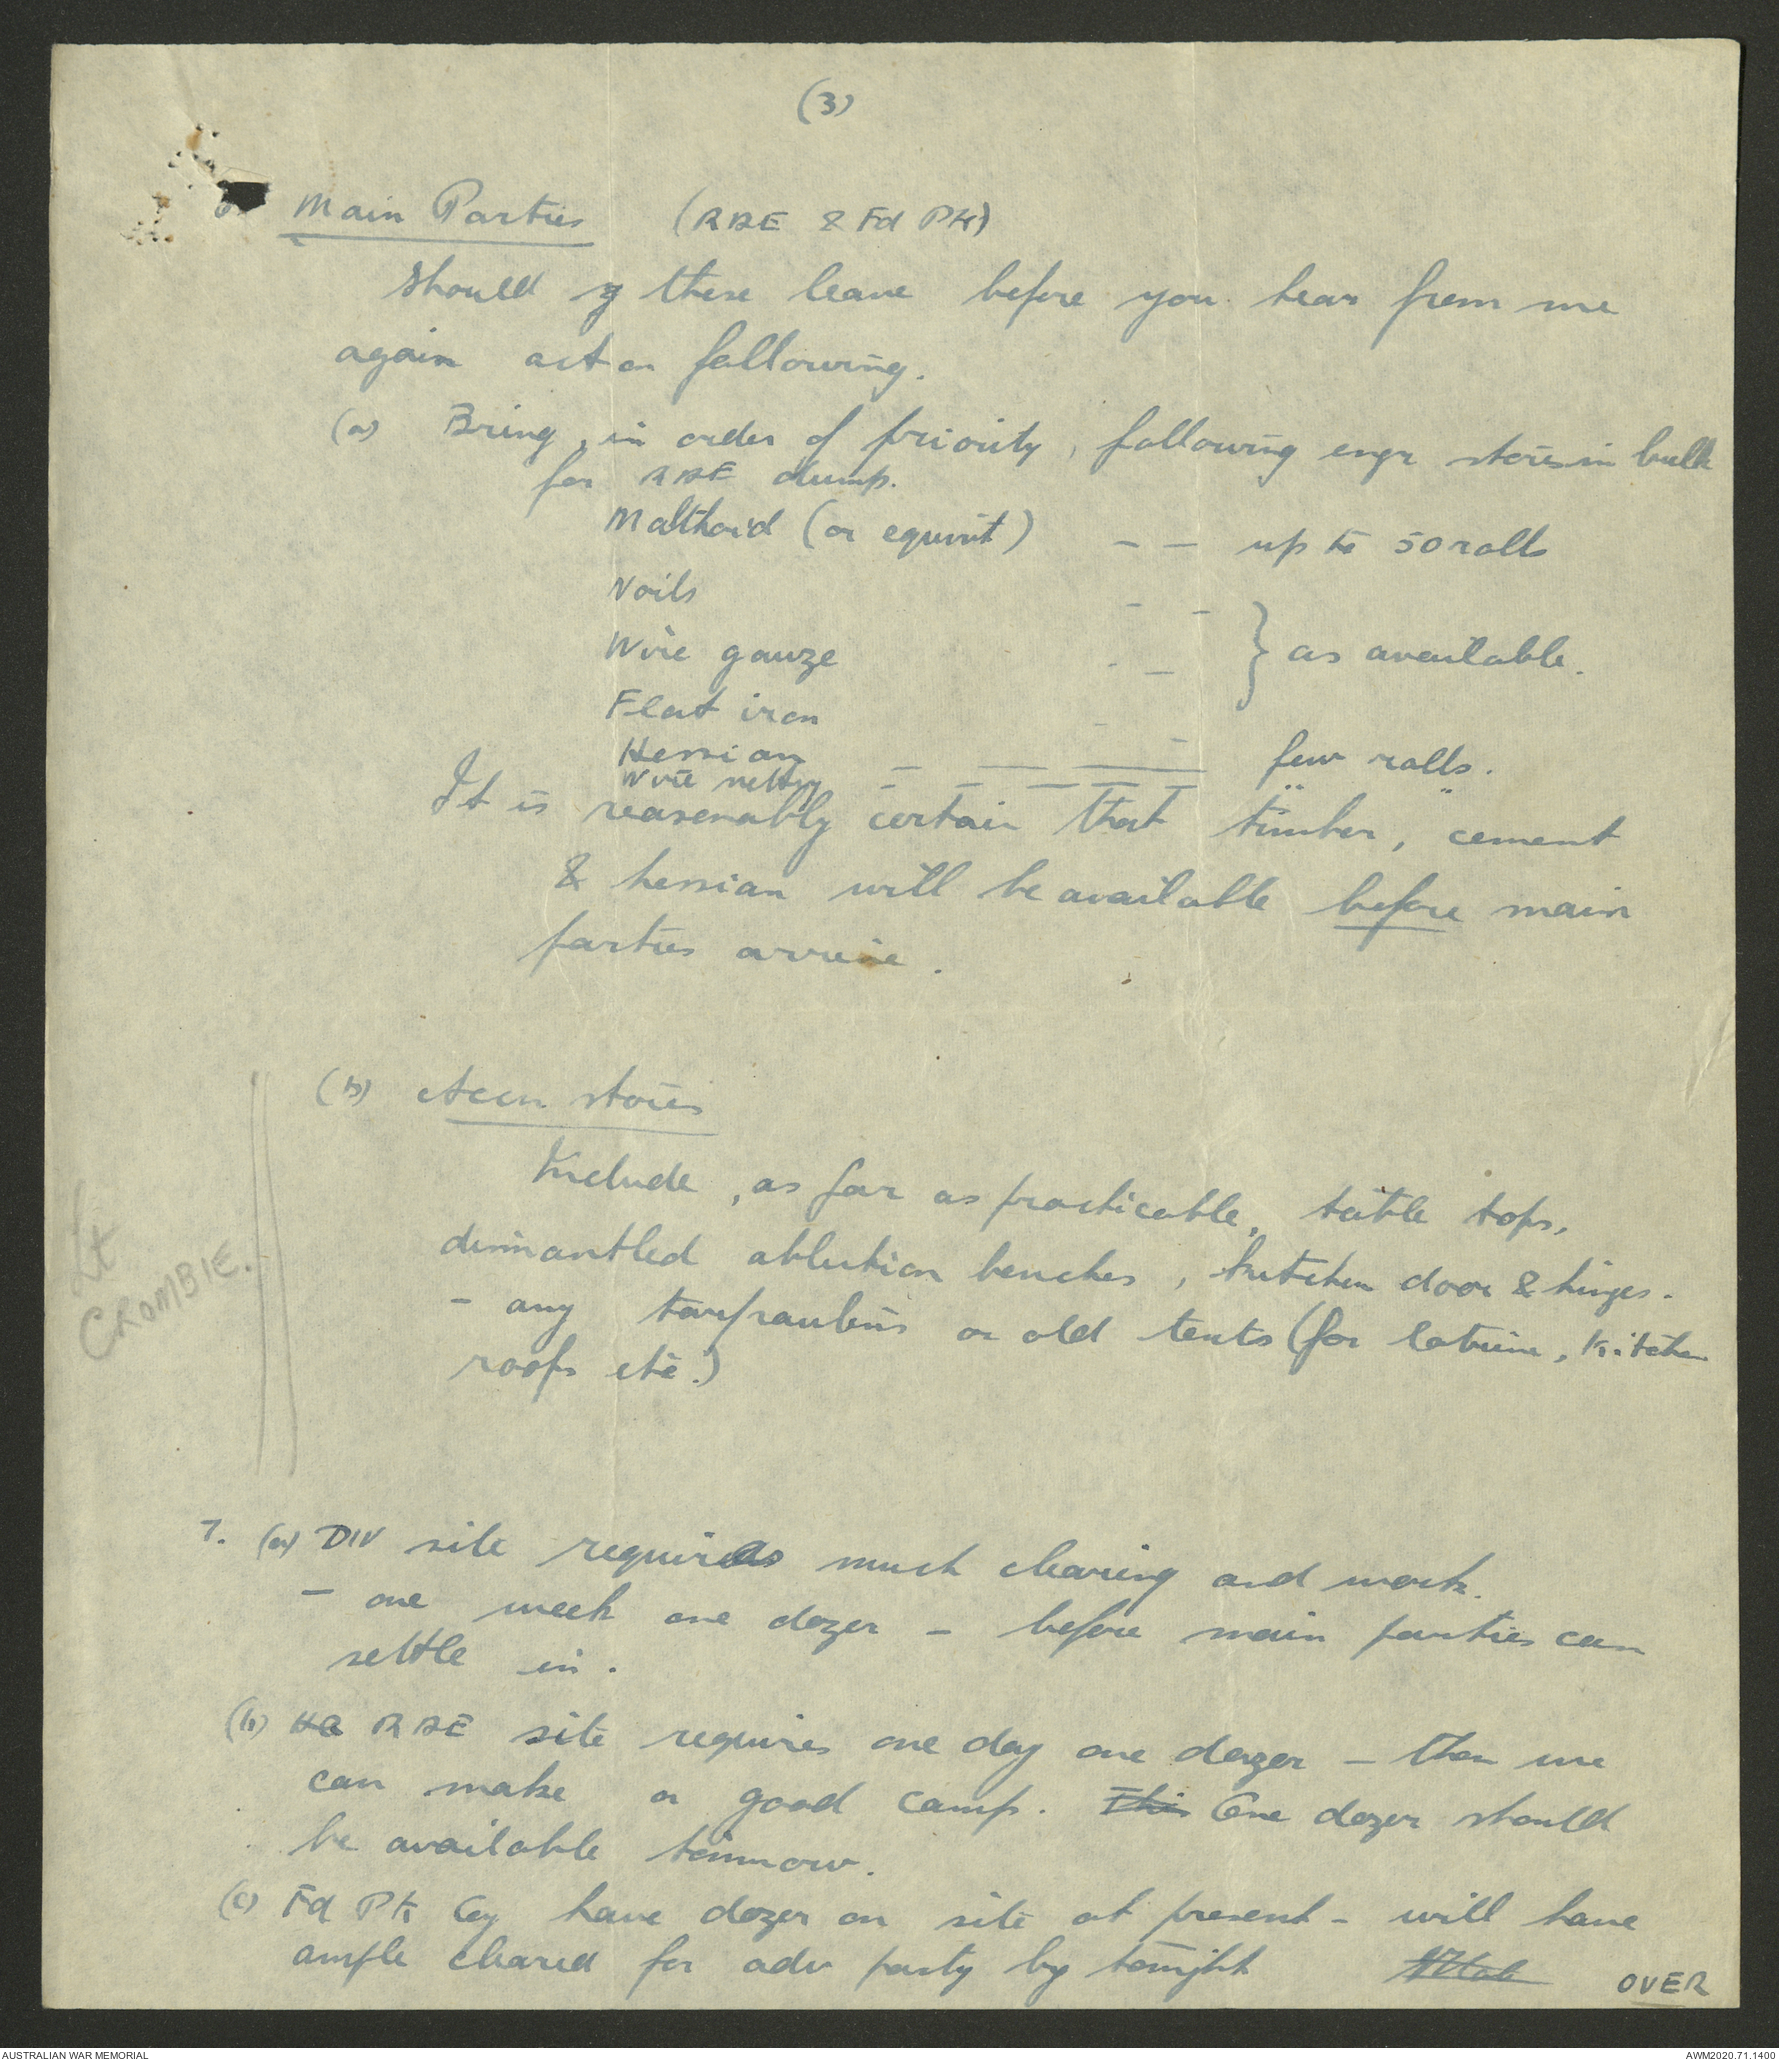 (3)
6. Main Parties (RAE & Fd Pk)
Should these leave before you hear from me
again act on following.
(a) Bring, in order of priority, following engr stores in bulk
for RAE dump.
Malthoid (or equivt) - - up to 50 rolls
Nails - -
Wire gauze - - } as available.
Flat iron - -
Hessian - - - few rolls.
Wire netting - - - - - " "
It is reasonably certain that timber, cement
& hessian will be available before main
parties arrive.
(b) Accn stores
Include, as far as practicable, table tops,
dismantled ablution benches, kitchen door & hinges.
- any tarpaulins or old tents (for latrine, kitchen
roofs etc.)
Lt
CROMBIE.
7. (a) DIV site requires much clearing and work.
- one week one dozer - before main parties can
settle in.
(b) HQ RAE site requires one day one dozer - then we
can make a good camp. This One dozer should
be available tomorrow.
(c) Fd Pk Coy have dozer on site at present - will have
ample cleared for adv party by tonight
OVER
AUSTRALIAN WAR MEMORIAL
AWM2020.71.1400